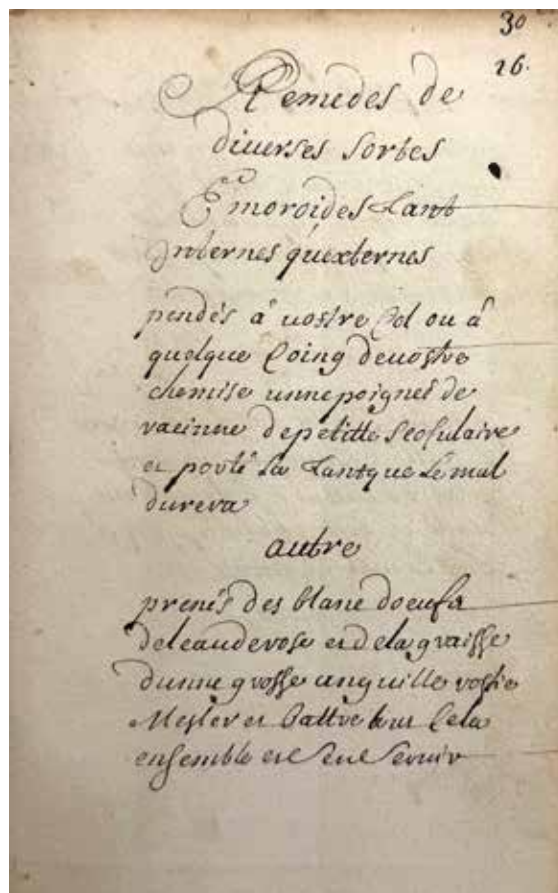 30
26.
Remedes de
diuerses sortes
Emoroides tant
Internes qu'externes
pendés a uostre Col ou a
quelque Coing deuostre
chemise unne poigneé de
racinne de petitte scofulaire
et porté La tantque Le mal
durera
autre
prenés des blanc doeufs
deleauderose et dela graisse
dunne grosse anguille rostie
Mesler et battre tout Cela
ensemble et sent seruir